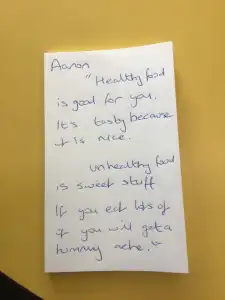 Aaron
"Healthy food
is good for you.
It's tasty because
it is nice.
Unhealthy food
is sweet stuff
If you eat lots of
it you will get a
tummy ache."